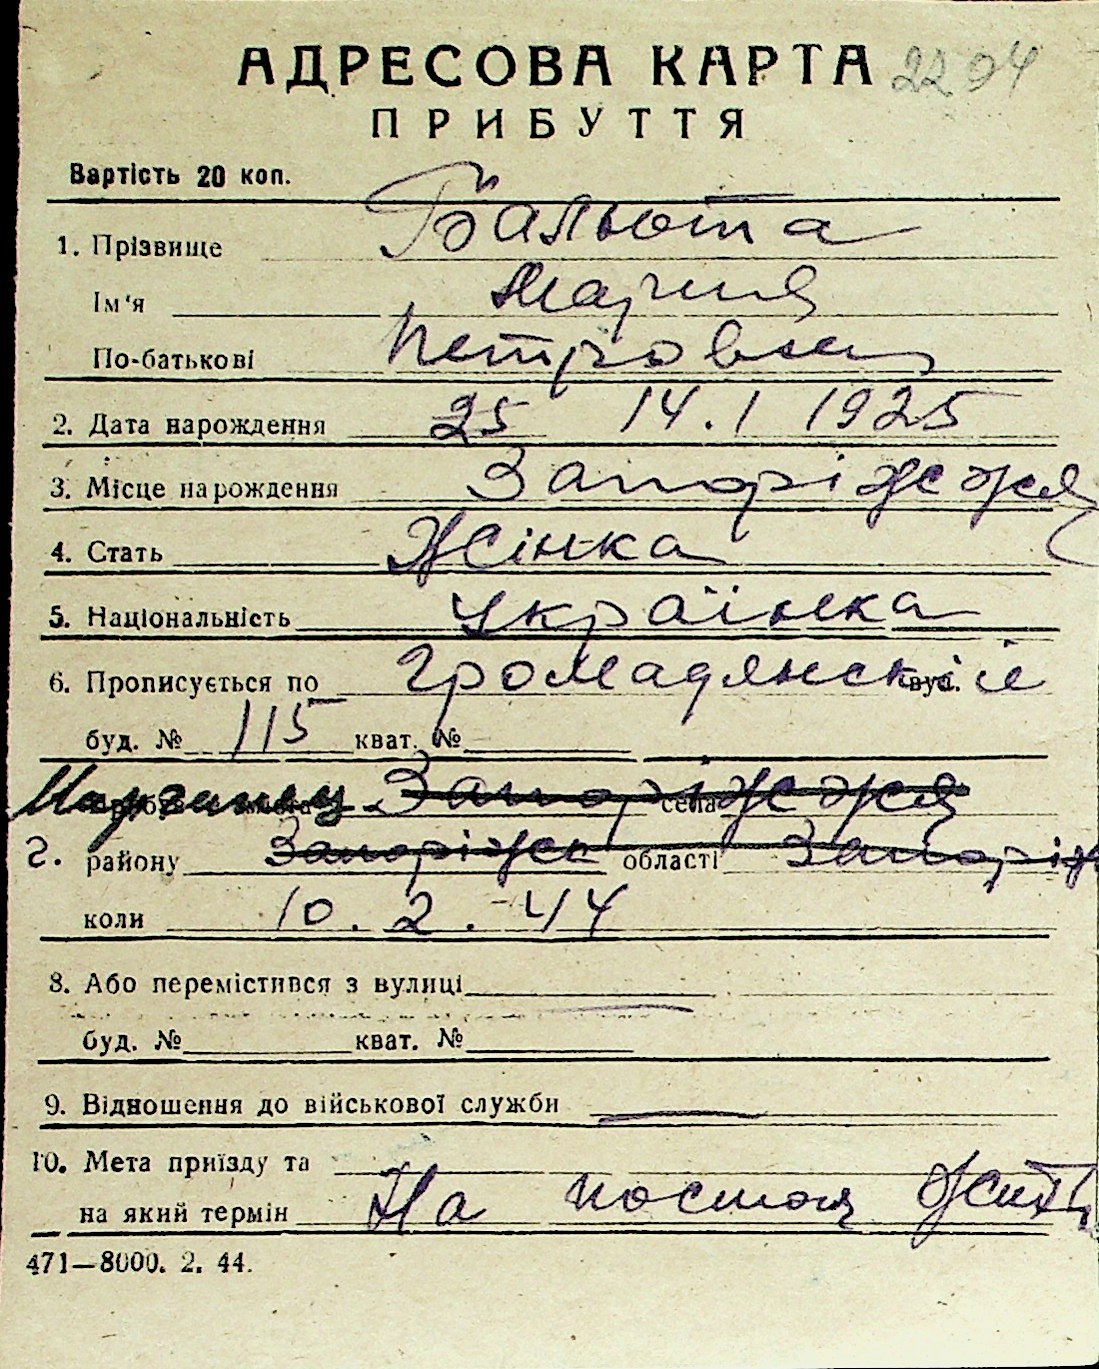 АДРЕСОВА КАРТА 2204
ПРИБУТТЯ
Вартість 20 коп.
1. Прізвище Бальота
Ім'я Мария
По-батькові Петровна
2. Дата народження 25 14.1 1925
3. Місце народження Запоріжжя
4. Стать Жінка
5. Національність Українка
6. Прописується по Громадянскій вул.
буд. № 115 кват. №
Марганец Запоріжжя села
г. району Запоріжск області Запоріж
коли 10.2.44
8. Або перемістився з вулиці
буд. № кват. №
9. Відношення до військової служби
10. Мета приїзду та
на який термін На постоя жит
471—8000. 2. 44.